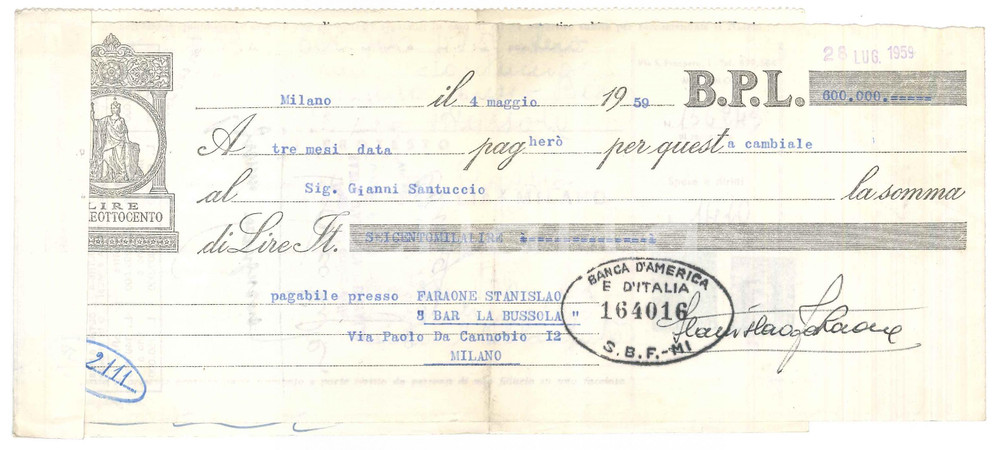 28 LUG. 1959
Milano il 4 maggio 1959 B.P.L. 600.000.=====
A tre mesi data pagherò per questa cambiale
al Sig. Gianni Santuccio la somma
LIRE
EOTTOCENTO
di Lire It. SEICENTOMILALIRE =================
pagabile presso FARAONE STANISLAO
BAR LA BUSSOLA "
Via Paolo Da Cannobio I2
MILANO
BANCA D'AMERICA
E D'ITALIA
164016
S.B.F.-MI
Stanislao Faraone
2111